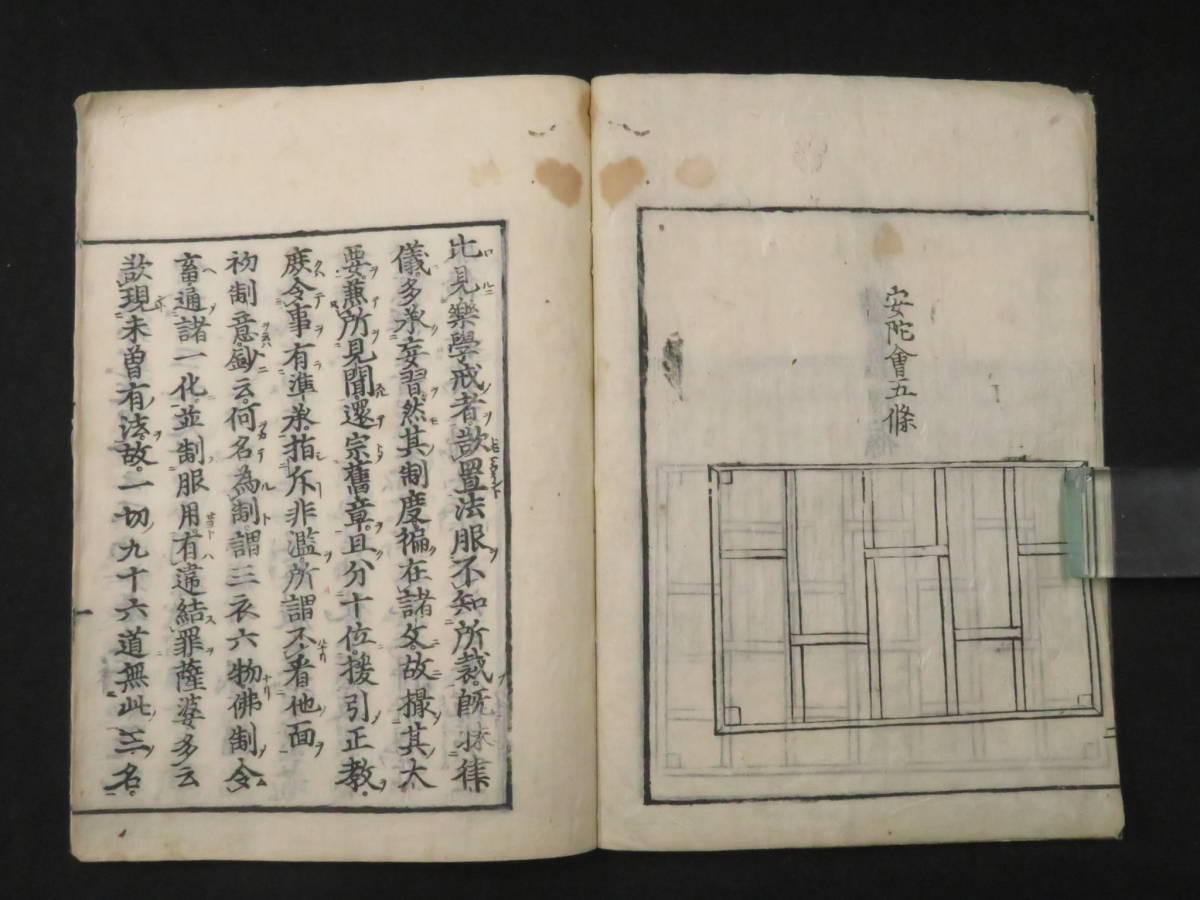 安陀會五條
比見樂學戒者欲置法服不知所裁既昧律
儀多承妄習然其制度徧在諸文故撮其大
要兼所見聞還宗舊章且分十位援引正教
庶令事有準承指斥非濫所謂不看他面
初制意鈔云何名為制謂三衣六物佛制令
畜通諸一化並制服用有違結罪薩婆多云
欲現未曾有法故一切九十六道無此三名